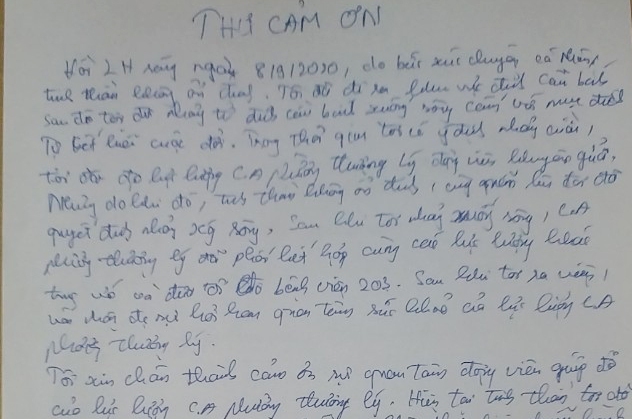 THƯ CẢM ƠN
Hồi 2H sáng ngày 8/9/2020, do bức xúc chuyện cá nhân,
tinh thần không ổn định. Tôi đã đi ra khu vực đỉnh cầu bính
sau đó tôi đã nhảy từ đỉnh cầu bính xuống sông cấm với mục đích
Tự kết liễu cuộc đời. Trong thời gian tôi có ý định nhảy cầu,
tôi đã được lực lượng C.A phường thượng Lý động viên khuyên giải.
Nhưng do lúc đó, tinh thần không ổn định, cùng quẫn lên tôi đã
quyết định nhảy xg sông. Sau khi tôi nhảy xuống sông, C.A
phường thượng lý đã phối kết hợp cùng các lực lượng khác
vớ và đưa tôi bệnh viện 203. Sau khi tôi ra viện,
hỏi han quan tâm sức khoẻ của lực lượng C.A
phường thượng lý.
Tôi xin chân thành cảm ơn sự quan tâm động viên giúp đỡ
của lực lượng C.A phường thượng lý. Hiện tại tinh thần tôi đã